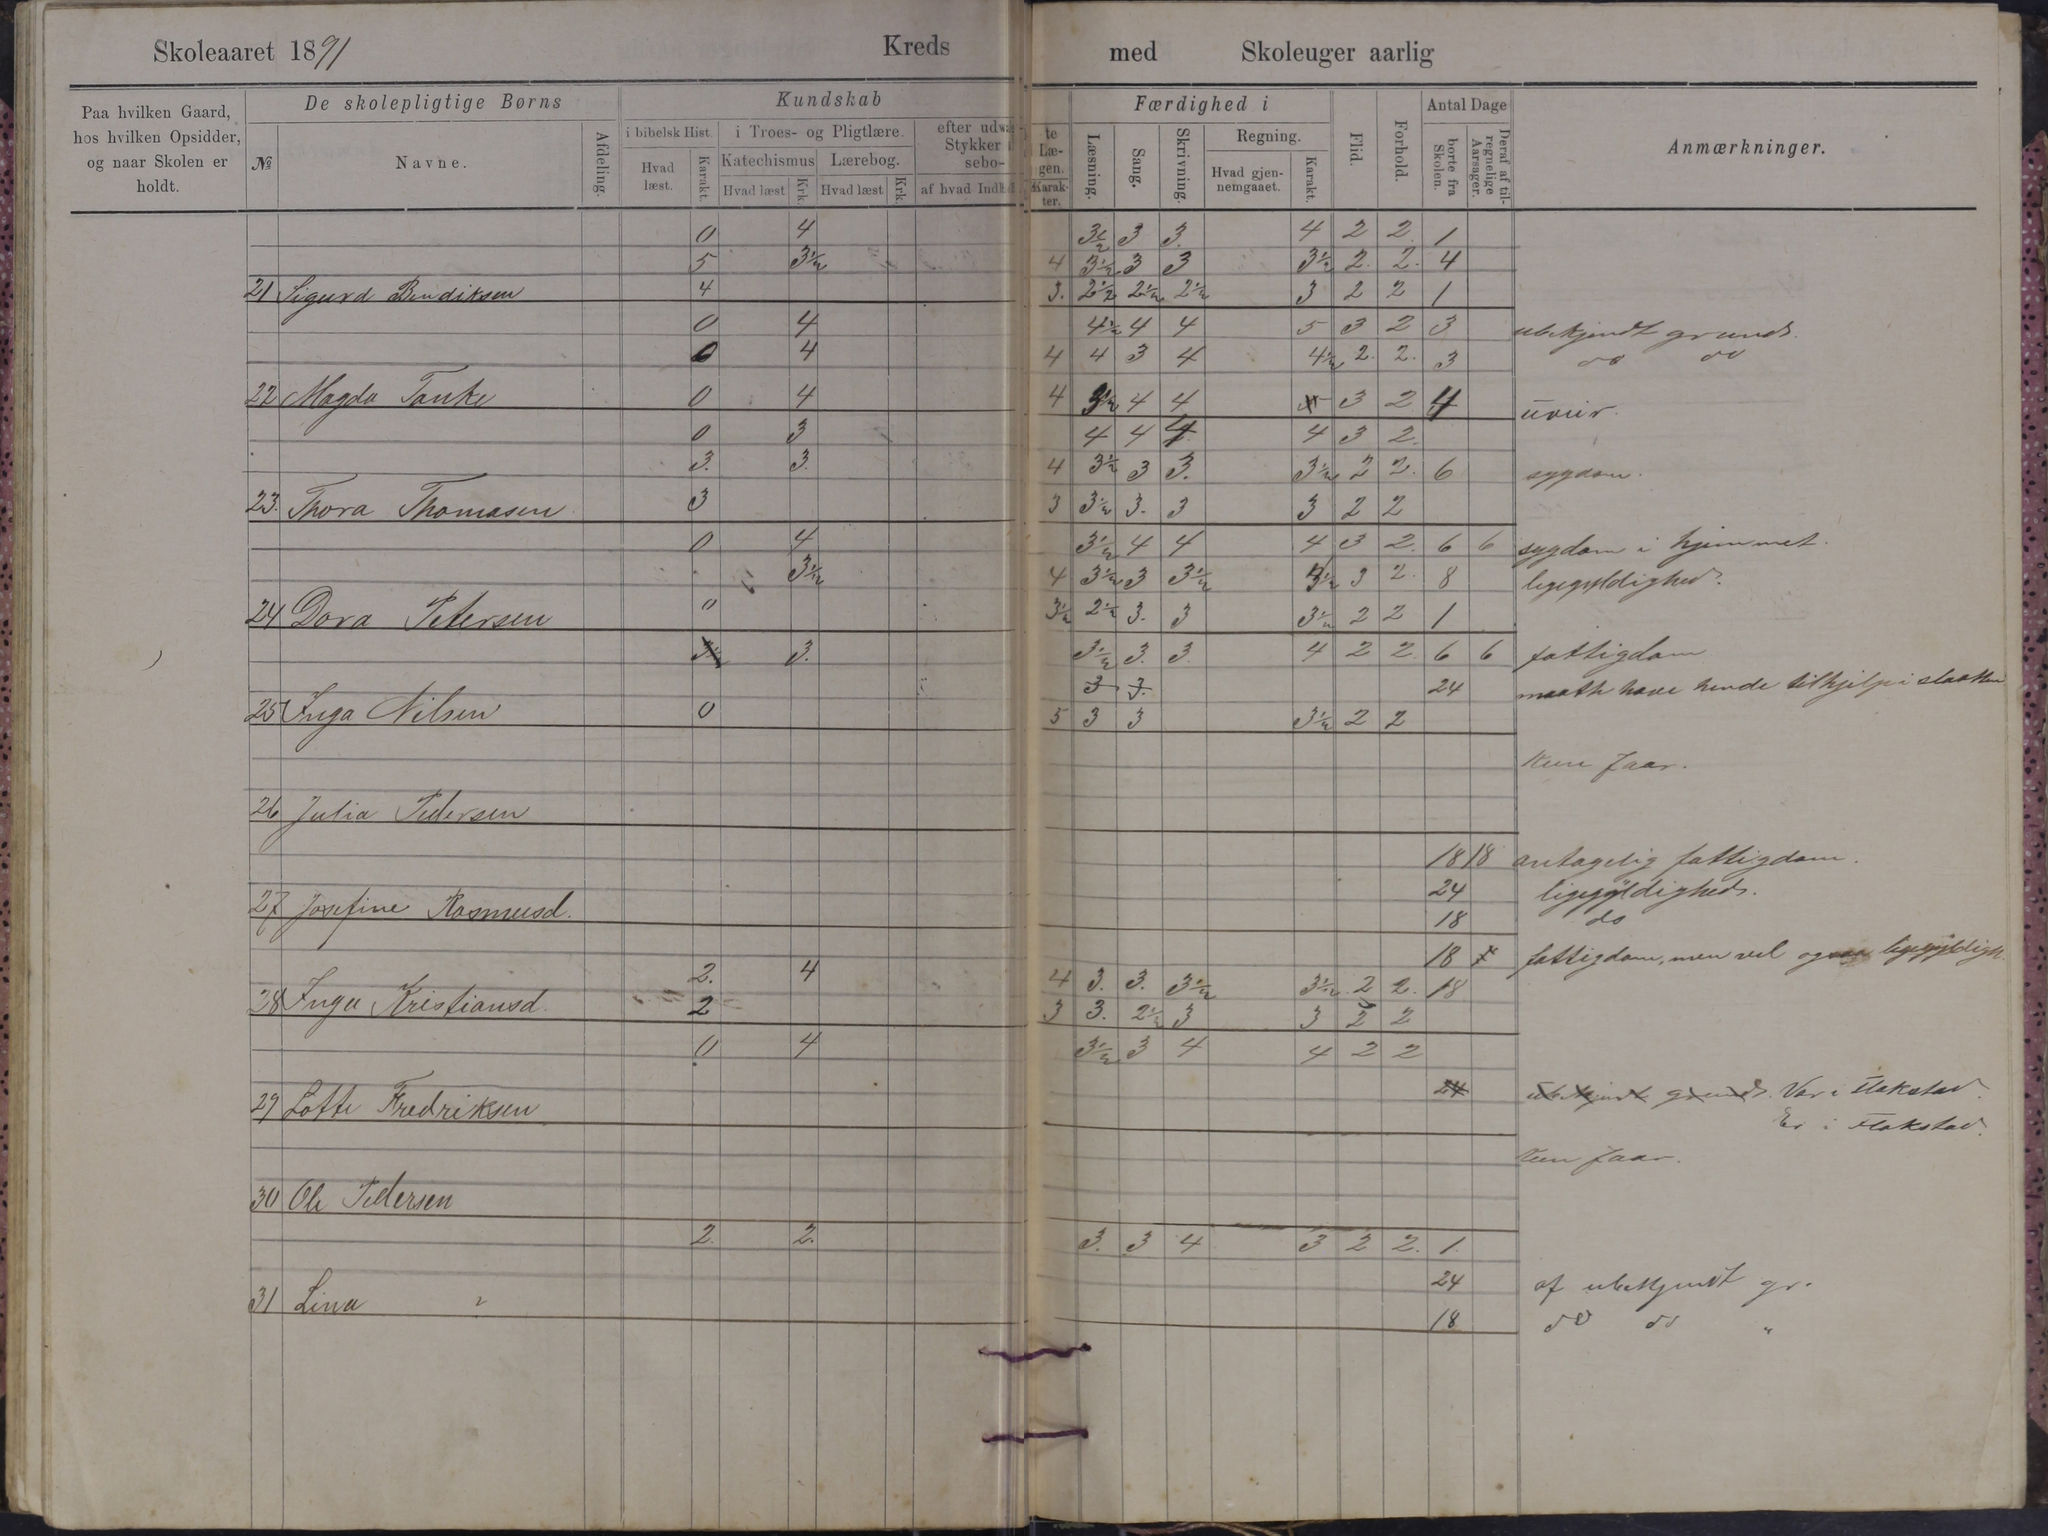 Skoleaaret 1891 Kreds med Skoleuger aarlig
Paa hvilken Gaard, hos hvilken Opsidder, og naar Skolen er holdt.
De skolepligtige Børns
№ Navne. Afdeling.
Kundskab
i bibelsk Hist. i Troes- og Pligtlære. efter udvalgte
Stykker i Læ-
sebo- gen.
Hvad læst. Karakt. Katechismus Lærebog.
Hvad læst Krk. Hvad læst Krk. af hvad Indh Karak-
ter.
Færdighed i
Læsning. Sang. Skrivning. Regning.
Hvad gjen-
nemgaaet. Karakt.
Flid. Forhold. Antal Dage
borte fra Skolen. Deraf af til-
regnelige Aarsager.
Anmærkninger.
0 4 3½ 3 3. 4 2 2 1
5 3½ 4 3½ 3 3 3½ 2. 2. 4
21 Sigurd Bendiksen 4 3. 2½ 2½ 2½ 3 2 2 1
0 4 4½ 4 4 5 3 2 3 ubekjendt grund.
0 4 4 4 3 4 4½ 2. 2. 3 do do
22 Magda Tanke 0 4 4 3½ 4 4 3 2 4 uveir.
0 3 4 4 4 4 3 2.
3. 3. 4 3½ 3 3. 3½ 2 2. 6 sygdom.
23. Thora Thomasen 3 3 3½ 3. 3 3 2 2
0 4 3½ 4 4 4 3 2. 6 6 sygdom i hjemmet.
3½ 4 3½ 3 3½ 3½ 3 2. 8 ligegyldighed.
24 Dora Petersen 0 3½ 2½ 3. 3 3½ 2 2 1
3½ 3. 3½ 3. 3. 4 2 2. 6 6 fattigdom
3 3. 24 maatte have hende tilhjelp i slaatten
25 Inga Nilsen 0 5 3 3 3½ 2 2
Kun 7 aar.
26 Julia Pedersen
18 18 antagelig fattigdom.
24 ligegyldighed.
27 Josefine Rasmusd. 18 do
18 fattigdom, men vel ogsaa ligegyldigh.
2. 4 4 3. 3. 3½ 3½ 2 2. 18
28 Inga Kristiansd. 2 3 3. 2½ 3 3 2 2
0 4 3½ 3 4 4 2 2
24 ubekjendt grund. Var i Flakstad.
29 Lotte Fredriksen Er i Flakstad.
Kun 7 aar.
30 Ole Pedersen
2. 2. 3. 3 4 3 2 2. 1.
24 af ubekjendt gr.
31 Lina " 18 do do "